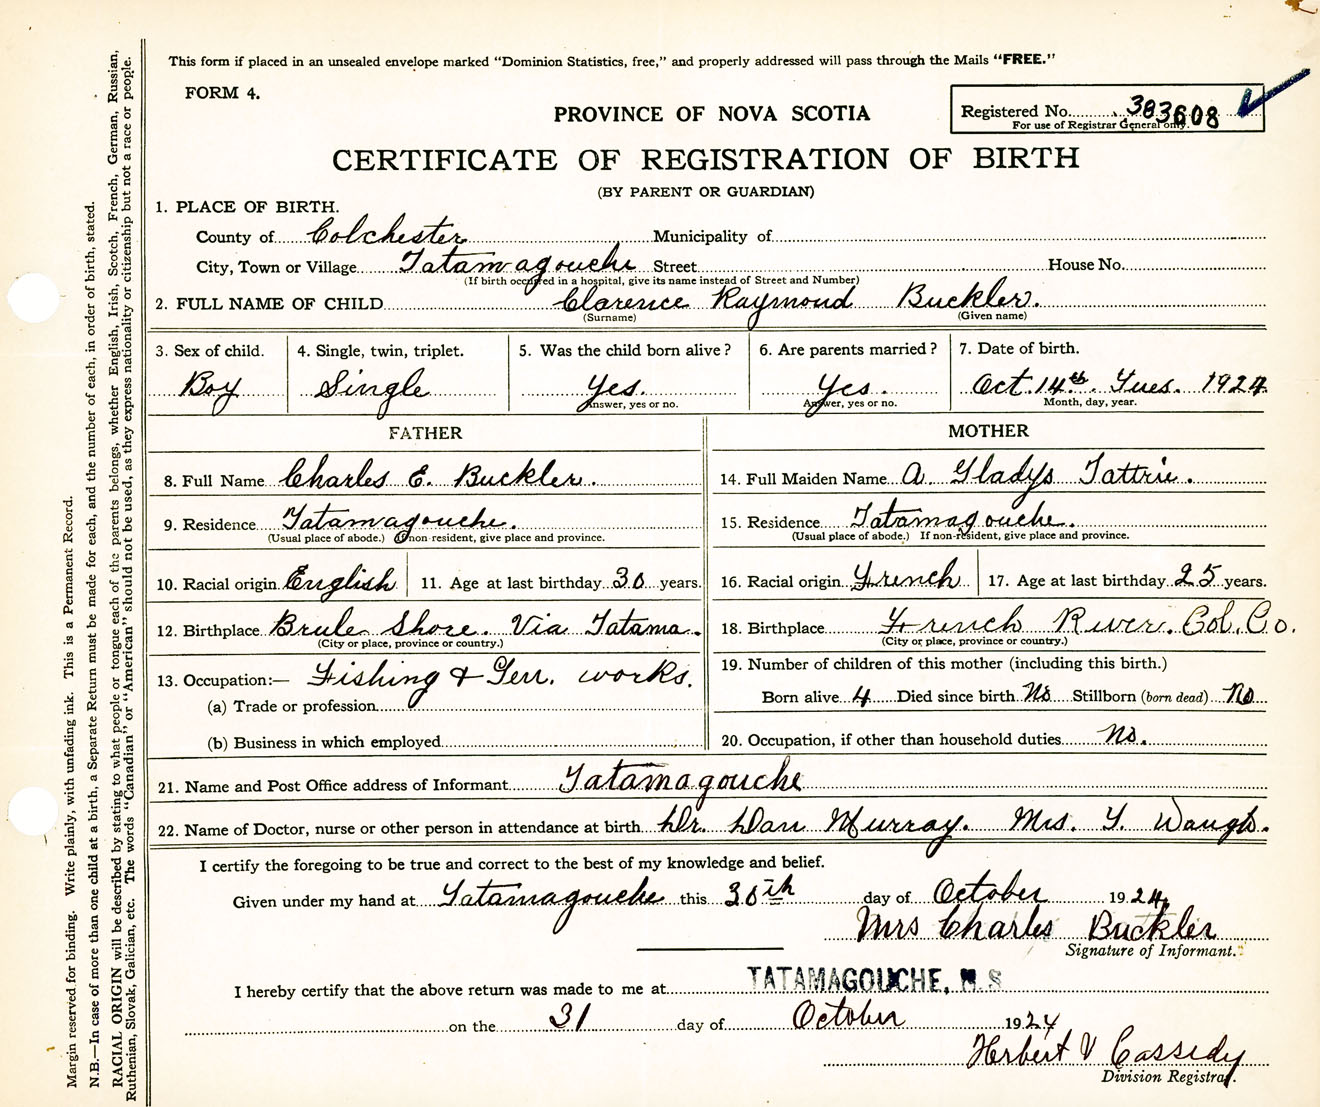 This form if placed in an unsealed envelope marked "Dominion Statistics, free," and properly addressed will pass through the Mails "FREE."
FORM 4.
PROVINCE OF NOVA SCOTIA
Registered No. 383608
For use of Registrar General only.
CERTIFICATE OF REGISTRATION OF BIRTH
(BY PARENT OR GUARDIAN)
1. PLACE OF BIRTH.
County of Colchester Municipality of
City, Town or Village Tatamagouche Street House No.
(If birth occurred in a hospital, give its name instead of Street and Number)
2. FULL NAME OF CHILD Clarence Raymond Buckler.
(Surname) (Given name)
3. Sex of child. 4. Single, twin, triplet. 5. Was the child born alive? 6. Are parents married? 7. Date of birth.
Boy Single Yes. Yes. Oct. 14th. Tues. 1924
Answer, yes or no. Answer, yes or no. Month, day, year.
FATHER
8. Full Name Charles E. Buckler.
9. Residence Tatamagouche.
(Usual place of abode.) If non-resident, give place and province.
10. Racial origin English 11. Age at last birthday 30 years.
12. Birthplace Brule Shore. Via Tatama.
(City or place, province or country.)
13. Occupation:— Fishing & Gen. works.
(a) Trade or profession
(b) Business in which employed
MOTHER
14. Full Maiden Name A Gladys Tattrie.
15. Residence Tatamagouche.
(Usual place of abode.) If non-resident, give place and province.
16. Racial origin French 17. Age at last birthday 25 years.
18. Birthplace French River. Col. Co.
(City or place, province or country.)
19. Number of children of this mother (including this birth.)
Born alive 4 Died since birth No Stillborn (born dead) No
20. Occupation, if other than household duties No.
21. Name and Post Office address of Informant Tatamagouche
22. Name of Doctor, nurse or other person in attendance at birth Dr. Dan Murray. Mrs. Y. Waugh.
I certify the foregoing to be true and correct to the best of my knowledge and belief.
Given under my hand at Tatamagouche this 30th day of October 1924
Mrs Charles Buckler
Signature of Informant.
I hereby certify that the above return was made to me at TATAMAGOUCHE, N.S
on the 31 day of October 1924
Herbert V Cassidy
Division Registrar.
Margin reserved for binding. Write plainly, with unfading ink. This is a Permanent Record.
N.B.—In case of more than one child at a birth, a Separate Return must be made for each, and the number of each, in order of birth, stated.
RACIAL ORIGIN will be described by stating to what people or tongue each of the parents belongs, whether English, Irish, Scotch, French, German, Russian,
Ruthenian, Slovak, Galician, etc. The words "Canadian" or "American" should not be used, as they express nationality or citizenship but not a race or people.